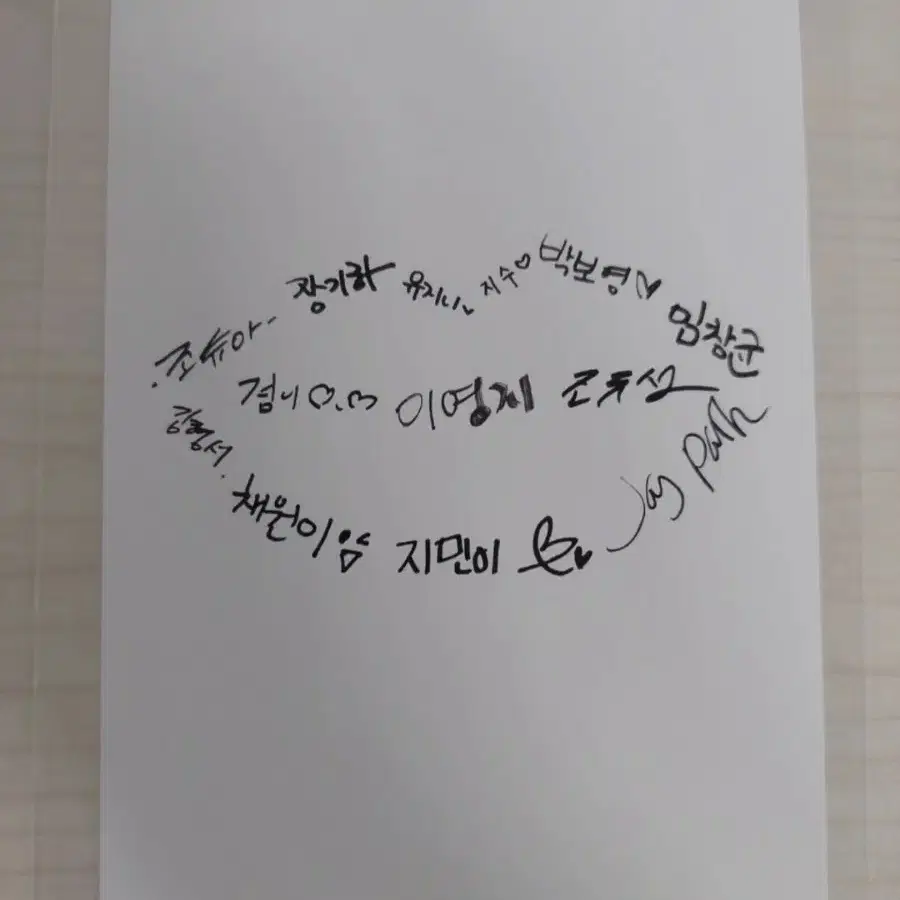 조슈아~
장기하
유지니
지수♡
박보영♡
임창균
겸니♡.♡
이영지
김형서.
채원이
Jay park
지민이